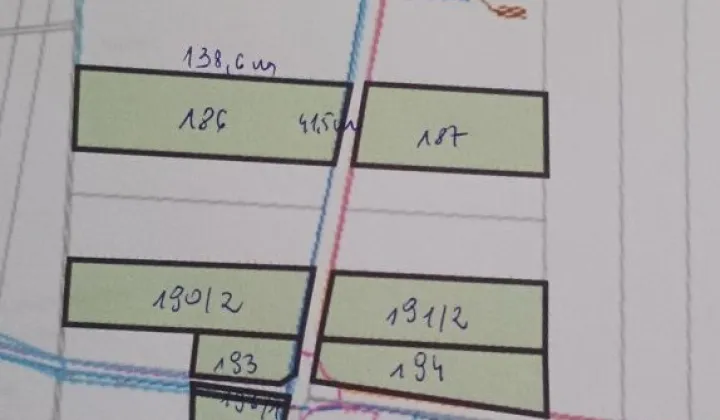 138,6 m
186
41,5 m
187
190/2
191/2
193
194